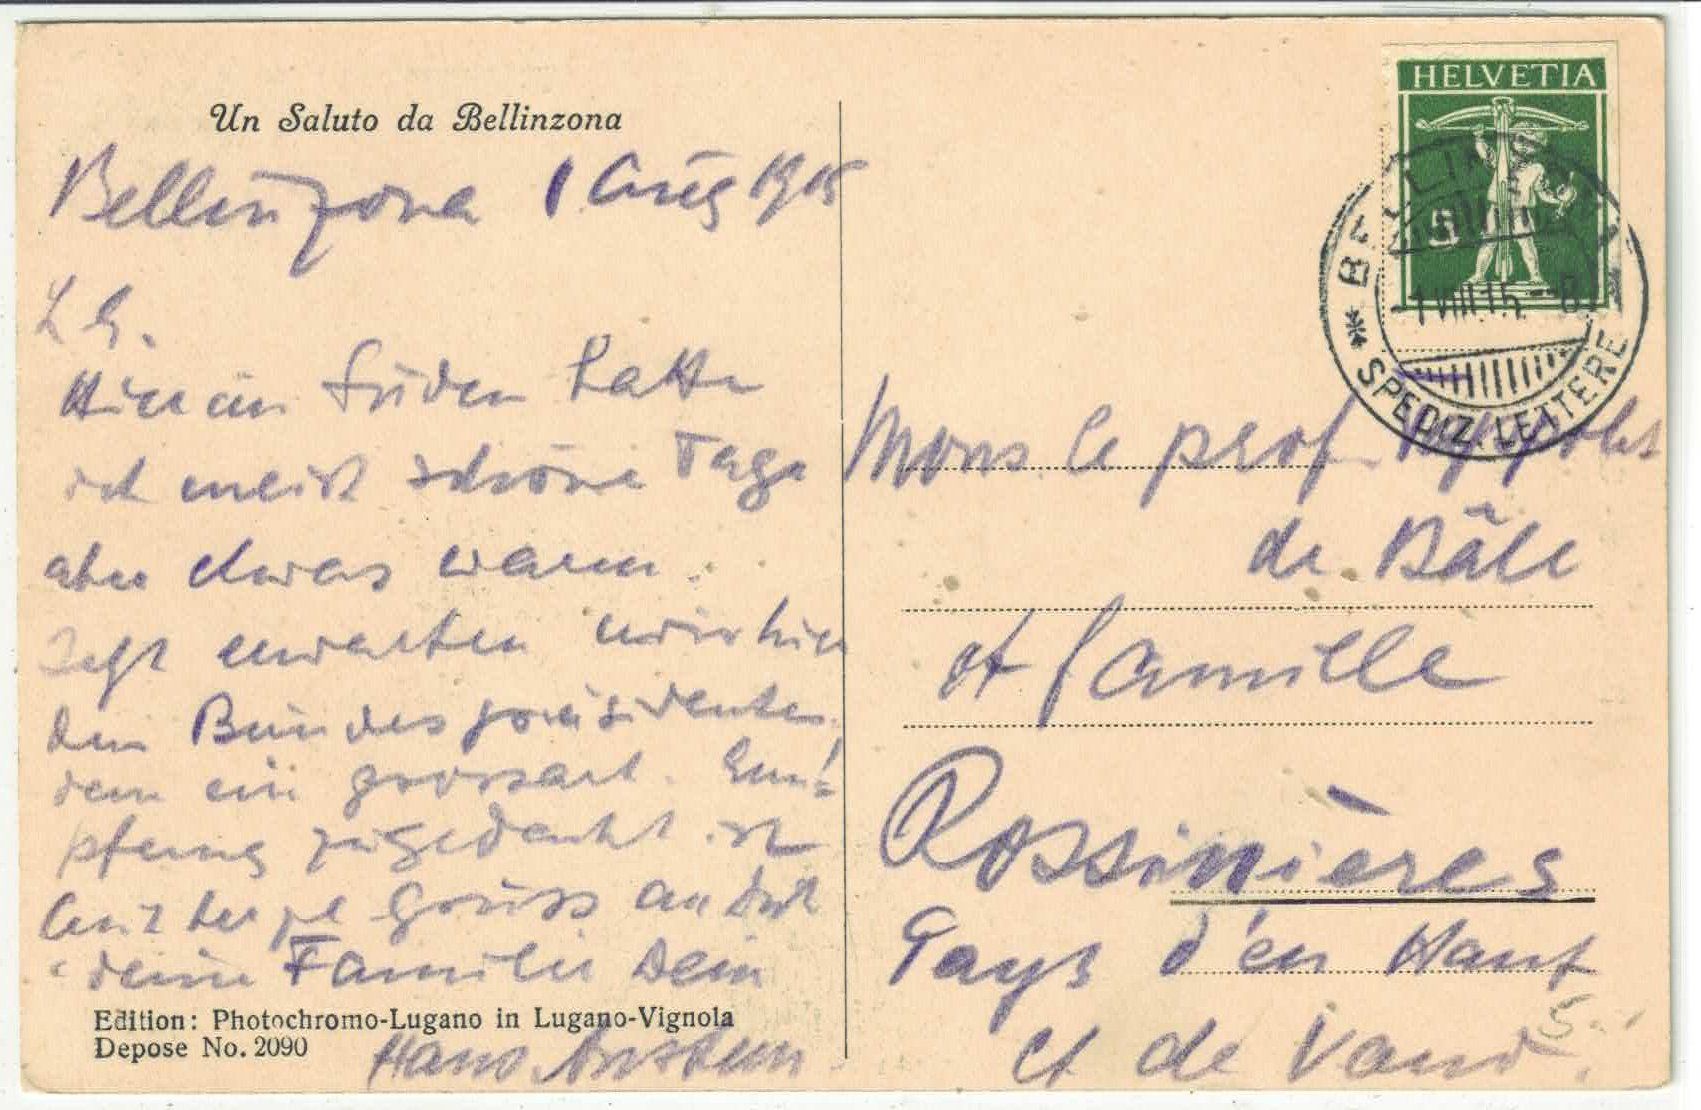 Un Saluto da Bellinzona
Bellinzona 1 Aug 1915
L G.
Hier im Süden hatte
ich meist schöne Tage
aber etwas warm.
Jetzt erwarten wir hier
den Bundespräsidenten
dem ein grossart. Em-
pfang zugedacht ist
Gruss an Dich
deine Familie Dein
Hans
Edition: Photochromo-Lugano in Lugano-Vignola
Depose No. 2090
HELVETIA
5
BELLINZONA
-1 VIII 15 - 8
SPEDIZ. LETTERE
Mons le prof
de Bâle
et famille
Rossinières
Pays d'en Haut
Ct de Vaud.
5.-